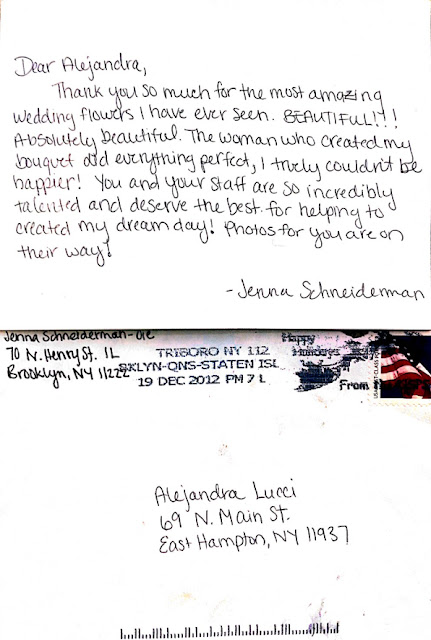 Dear Alejandra,
Thank you so much for the most amazing
wedding flowers I have ever seen. BEAUTIFUL!!!
Absolutely beautiful. The woman who created my
bouquet did everything perfect, I truely couldn't be
happier! You and your staff are so incredibly
talented and deserve the best for helping to
created my dream day! Photos for you are on
their way!
-Jenna Schneiderman
Jenna Schneiderman-
70 N. Henry St. 1L
Brooklyn, NY 11222
TRIBORO NY 112
BKLYN-QNS-STATEN ISL
19 DEC 2012 PM 7 L
Happy
From
Alejandra Lucci
69 N. Main St.
East Hampton, NY 11937